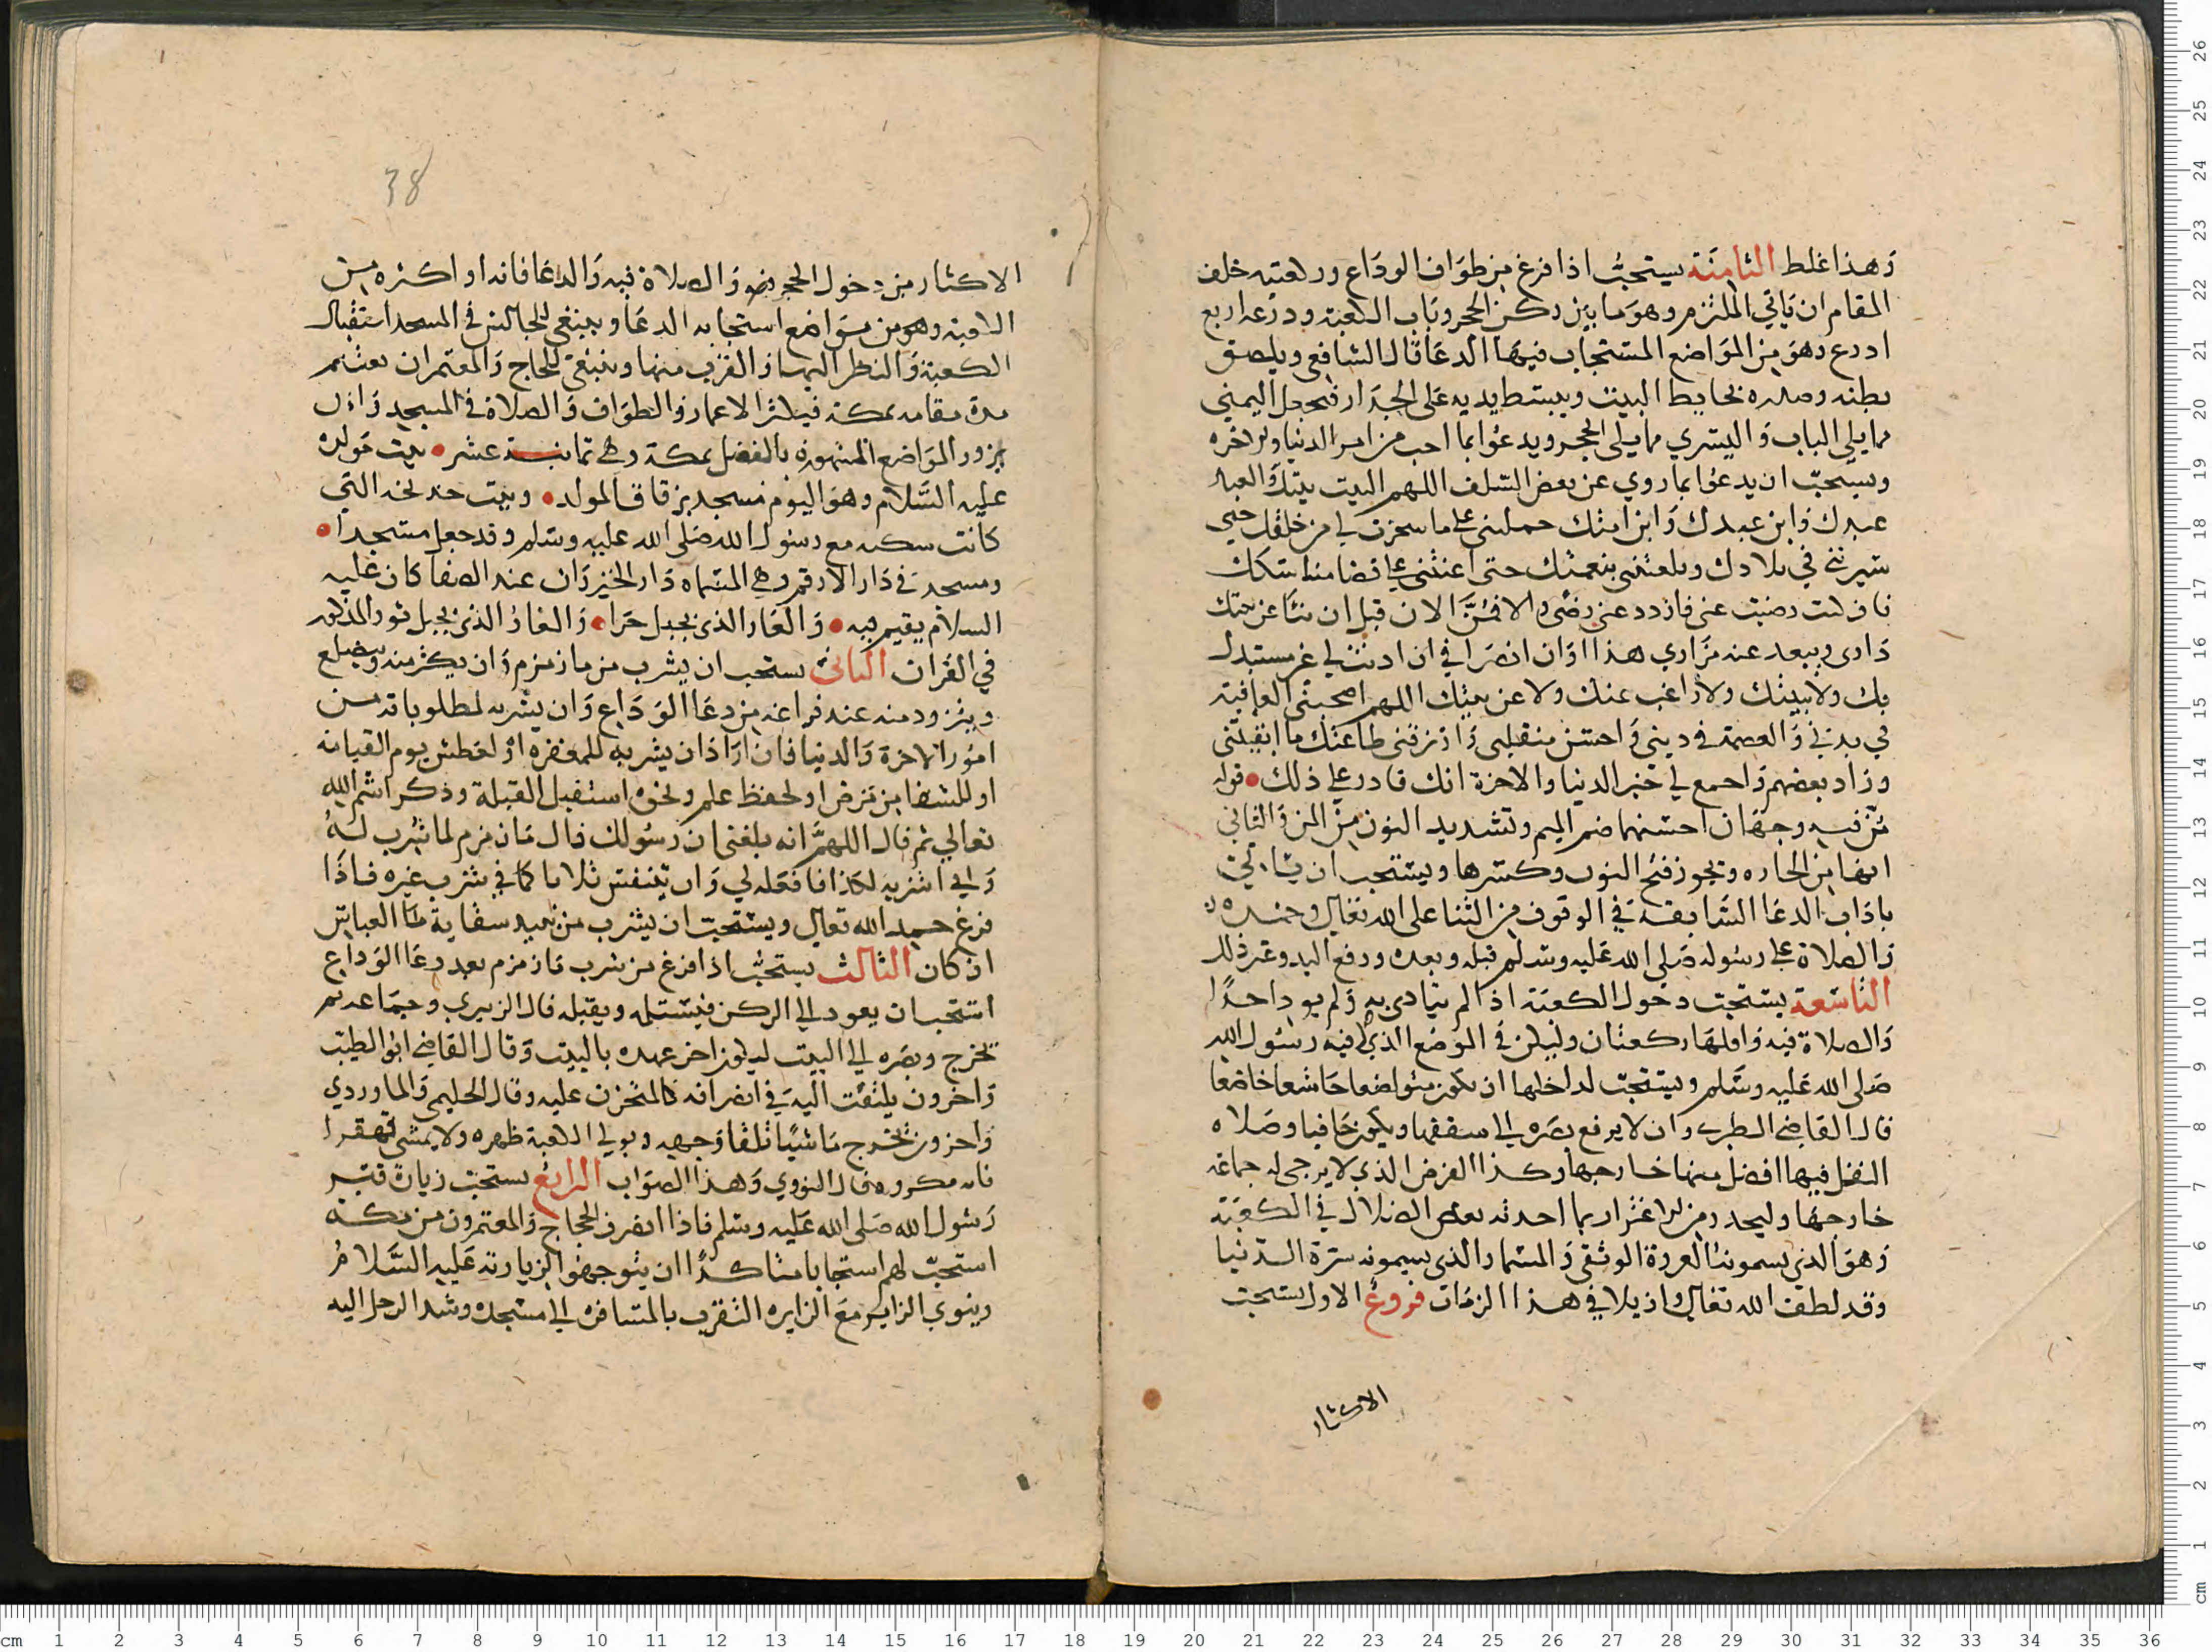 وهذا غلط الثامنة يستحب اذا فرغ من طواف الوداع وركعتيه خلف
المقام ان ياتي الملتزم وهو ما بين ركن الحجر وباب الكعبة وذرعه اربع
اذرع وهو من المواضع المستجاب فيها الدعا قال الشافعي ويلصق
بطنه وصدره بحايط البيت ويبسط يديه على الجدار فيجعل اليمني
مما يلي الباب واليسري مما يلي الحجر ويدعوا بما احب من امر الدنيا والاخره
ويستحب ان يدعوا بما روي عن بعض السلف اللهم البيت بيتك والعبد
عبدك وابن عبدك وابن امتك حملتني على ما سخرت لي من خلقك حتي
سيرتني في بلادك وبلغتني بنعمتك حتى اعنتني على قضا مناسكك
فان كنت رضيت عني فازدد عني رضى والا فمن الان قبل ان تنأ عن بيتك
داري ويبعد عنه مزاري هذا اوان انصرافي ان اذنت لي غير مستبدل
بك ولا ببيتك ولا راغب عنك ولا عن بيتك اللهم اصحبني العافية
في بدني والعصمة في ديني واحسن منقلبي وارزقني طاعتك ما ابقيتني
وزاد بعضهم واجمع لي خير الدنيا والاخرة انك قادر على ذلك قوله
من فيه وجهان احسنهما ضم الميم وتشديد النون من المن والثاني
انها من الجاره ويجوز فتح النون وكسرها ويستحب ان ياتي
باداب الدعا السابقة في الوقوف من الثنا على الله تعالى وحمده
والصلاة على رسوله صلى الله عليه وسلم قبله وبعده ورفع اليد وغير ذلك
التاسعة يستحب دخول الكعبة اذا لم يتاذى به ولم يوذ احدا
والصلاة فيه واقلها ركعتان وليكن في الموضع الذي صلى فيه رسول الله
صلى الله عليه وسلم ويستحب لداخلها ان يكون متواضعا خاشعا خاضعا
قال القاضي الطبري وان لا يرفع بصره الى سقفها ويكون حافيا وصلاه
النفل فيها افضل منها خارجها وكذا الفرض الذي لا يرجى له جماعة
خارجها وليحذر من الاغترار بما احدثه بعض الضلال في الكعبة
وهو الذي يسمونه العروة الوثقى والمسمار الذي يسمونه سترة الدنيا
وقد لطف الله تعالى وازيلا في هذا الزمان فروع الاول يستحب
الاكثار
38
الاكثار من دخول الحجر والصلاة فيه والدعا فانه او اكثره من
الكعبة وهو من مواضع استجابه الدعا وينبغي للجالس في المسجد استقبال
الكعبة والنظر اليها والقرب منها وينبغي للحاج والمعتمر ان يغتنم
مدة مقامه بمكة فيكثر الاعمار والطواف والصلاة في المسجد وان
يزور المواضع المشهورة بالفضل بمكة وهي ثمانية عشر بيت مولده
عليه السلام وهو اليوم مسجد بزقاق المولد وبيت خديجة التي
كانت سكنه مع رسول الله صلى الله عليه وسلم وقد جعل مسجدا
ومسجد في دار الارقم وهي المسماه دار الخيزران عند الصفا كان عليه
السلام يقيم فيه والغار الذي بجبل حرا والغار الذي بجبل ثور المذكور
في القران الثاني يستحب ان يشرب من ما زمزم وان يكثر منه ويتضلع
ويتزود منه عند فراغه من دعا الوداع وان يشربه لمطلوباته من
امور الاخرة والدنيا فان اراد ان يشربه للمغفرة او لعطش يوم القيامة
او للشفا من مرض او لحفظ علم ونحوه استقبل القبلة وذكر اسم الله
تعالي ثم قال اللهم انه بلغني ان رسولك قال ما زمزم لما شرب له
واني اشربه لكذا فافعله لي وان يتنفس ثلاثا كما في شرب غيره فاذا
فرغ حمد الله تعالى ويستحب ان يشرب من نبيذ سقاية العباس
ان كان الثالث يستحب اذا فرغ من شرب ما زمزم بعد دعا الوداع
استحب ان يعود الي الركن فيستلمه ويقبله قال الزبيري وجماعة ثم
يخرج وبصره الي البيت ليكون اخر عهده بالبيت وقال القاضي ابو الطيب
واخرون يلتفت اليه في انصرافه كالمتحزن عليه وقال الحليمي والماوردي
واخرون يخرج ماشيا تلقا وجهه ويولي الكعبة ظهره ولا يمشي قهقرا
فانه مكروه قال النووي وهذا الصواب الرابع يستحب زيارة قبر
رسول الله صلى الله عليه وسلم فاذا انصرف الحجاج والمعتمرون من مكة
استحب لهم استحبابا متاكدا ان يتوجهوا لزيارته عليه السلام
وينوي الزاير مع الزياره التقرب بالمسافره الي مسجده وشد الرحل اليه